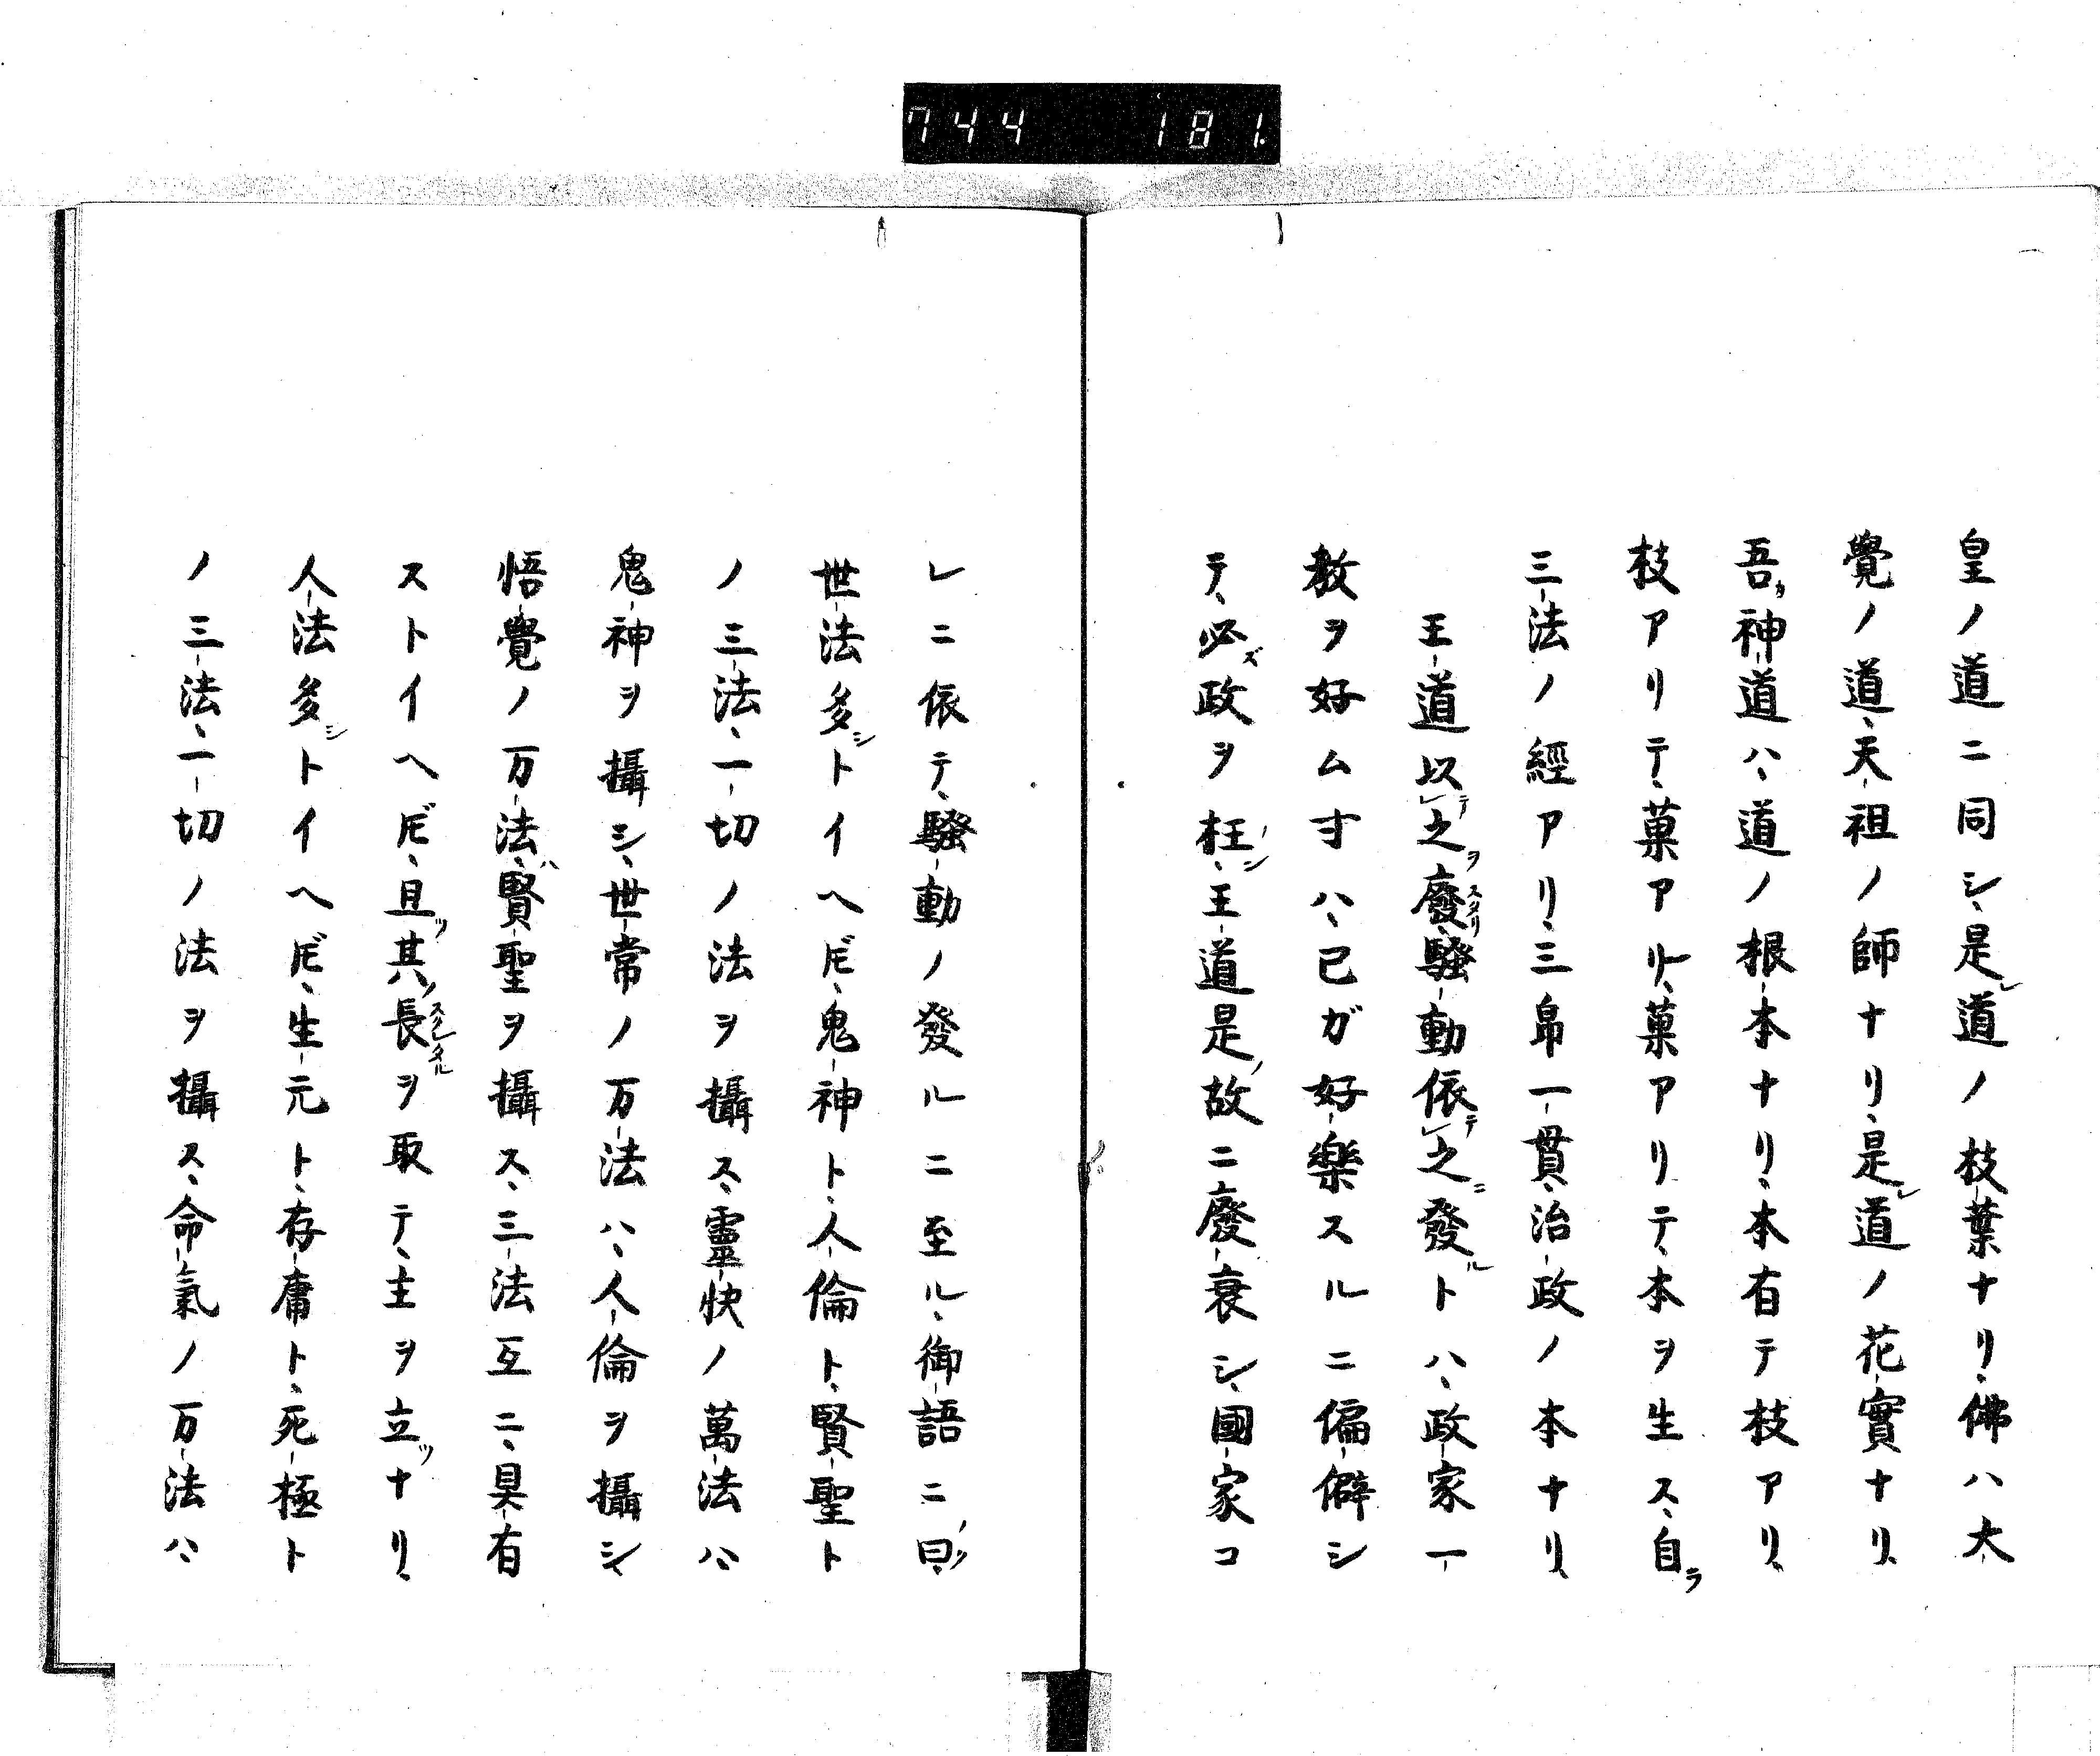 744 181.
皇ノ道ニ同シ、是レ道ノ枝葉ナリ、佛ハ大
覺ノ道、天祖ノ師ナリ、是レ道ノ花實ナリ、
吾カ神道ハ、道ノ根本ナリ、本有テ枝アリ、
枝アリテ、菓アリ、菓アリテ、本ヲ生ス、自ラ
三法ノ經アリ、三帛一貫、治政ノ本ナリ、
王道以テレ之ヲ廢スタリ、騷動依テレ之ニ發ルトハ、政家一
教ヲ好ム寸ハ、已ガ好樂スルニ偏僻シ
テ、必ズ政ヲ枉ノシ、王道是ノ故ニ廢衰シ、國家コ
レニ依テ、騷動ノ發ルニ至ル、御語ニノ曰ク、
世法多シトイヘ𪜈、鬼神ト、人倫ト、賢聖ト
ノ三法、一切ノ法ヲ攝ス、靈快ノ萬法ハ、
鬼神ヲ攝シ、世常ノ万法ハ、人倫ヲ攝シ、
悟覺ノ万法ハ、賢聖ヲ攝ス、三法互ニ、具有
ストイヘ𪜈、且ツ其ノ長スクレタルヲ取テ、主ヲ立ツナリ、
人法多シトイヘ𪜈、生元ト、存庸ト、死極ト
ノ三法、一切ノ法ヲ攝ス、命氣ノ万法ハ、